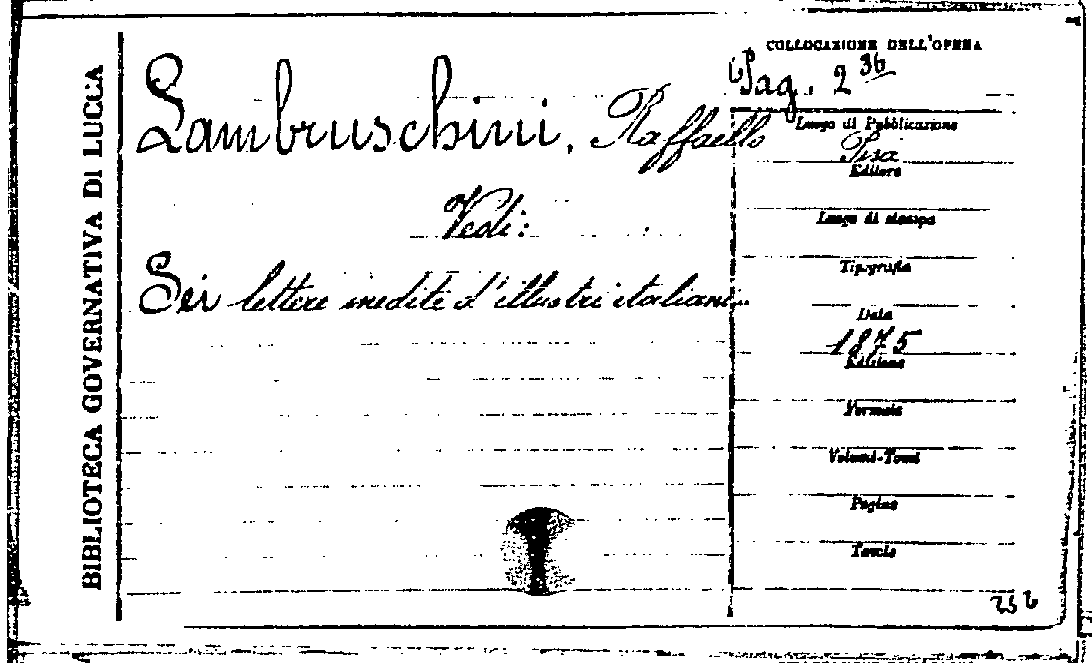 BIBLIOTECA GOVERNATIVA DI LUCCA
Lambruschini, Raffaello
Vedi:
Sei lettere inedite d'illustri italiani..
COLLOCAZIONE DELL'OPERA
Pag. 2
Luogo di Pubblicazione
Pisa
Editore
Luogo di stampa
Tipografia
Data
1875
Edizione
Formato
Volumi-Tomi
Pagine
Tavole